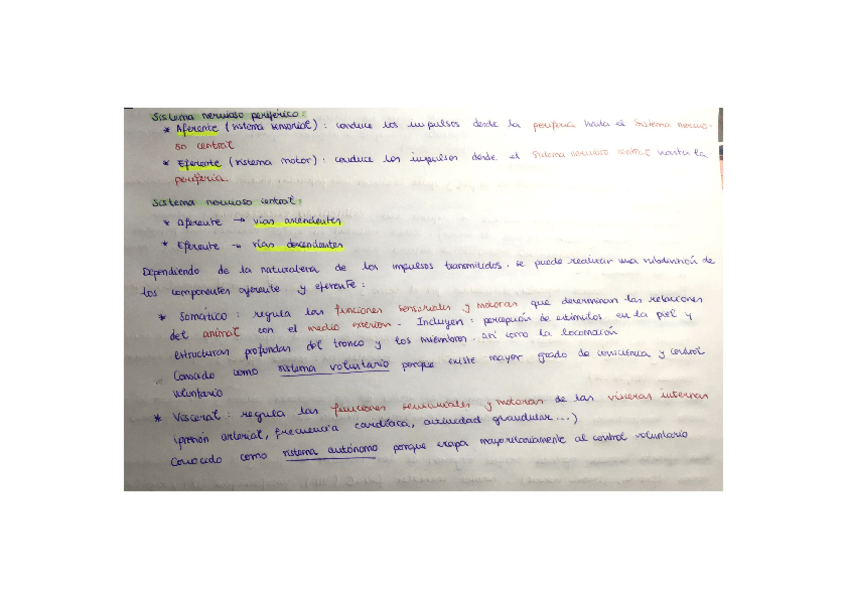 Sistema nervioso periférico:
* Aferente (sistema sensorial): conduce los impulsos desde la periferia hasta el Sistema nervio-
so central
* Eferente (sistema motor): conduce los impulsos desde el Sistema nervioso central hasta la
periferia.
Sistema nervioso central:
* Aferente → vías ascendentes
* Eferente → vías descendentes
Dependiendo de la naturaleza de los impulsos transmitidos. se puede realizar una subdivisión de
los componentes aferente y eferente:
* Somático: regula las funciones sensoriales y motoras que determinan las relaciones
del animal con el medio exterior. Incluyen: percepción de estímulos en la piel y
estructuras profundas del tronco y los miembros. así como la locomoción
Conocido como sistema voluntario porque existe mayor grado de consciencia y control
voluntario
* Visceral: regula las funciones sensoriales y motoras de las vísceras internas
(presión arterial, frecuencia cardíaca, actividad glandular...)
Conocido como sistema autónomo porque escapa mayoritariamente al control voluntario